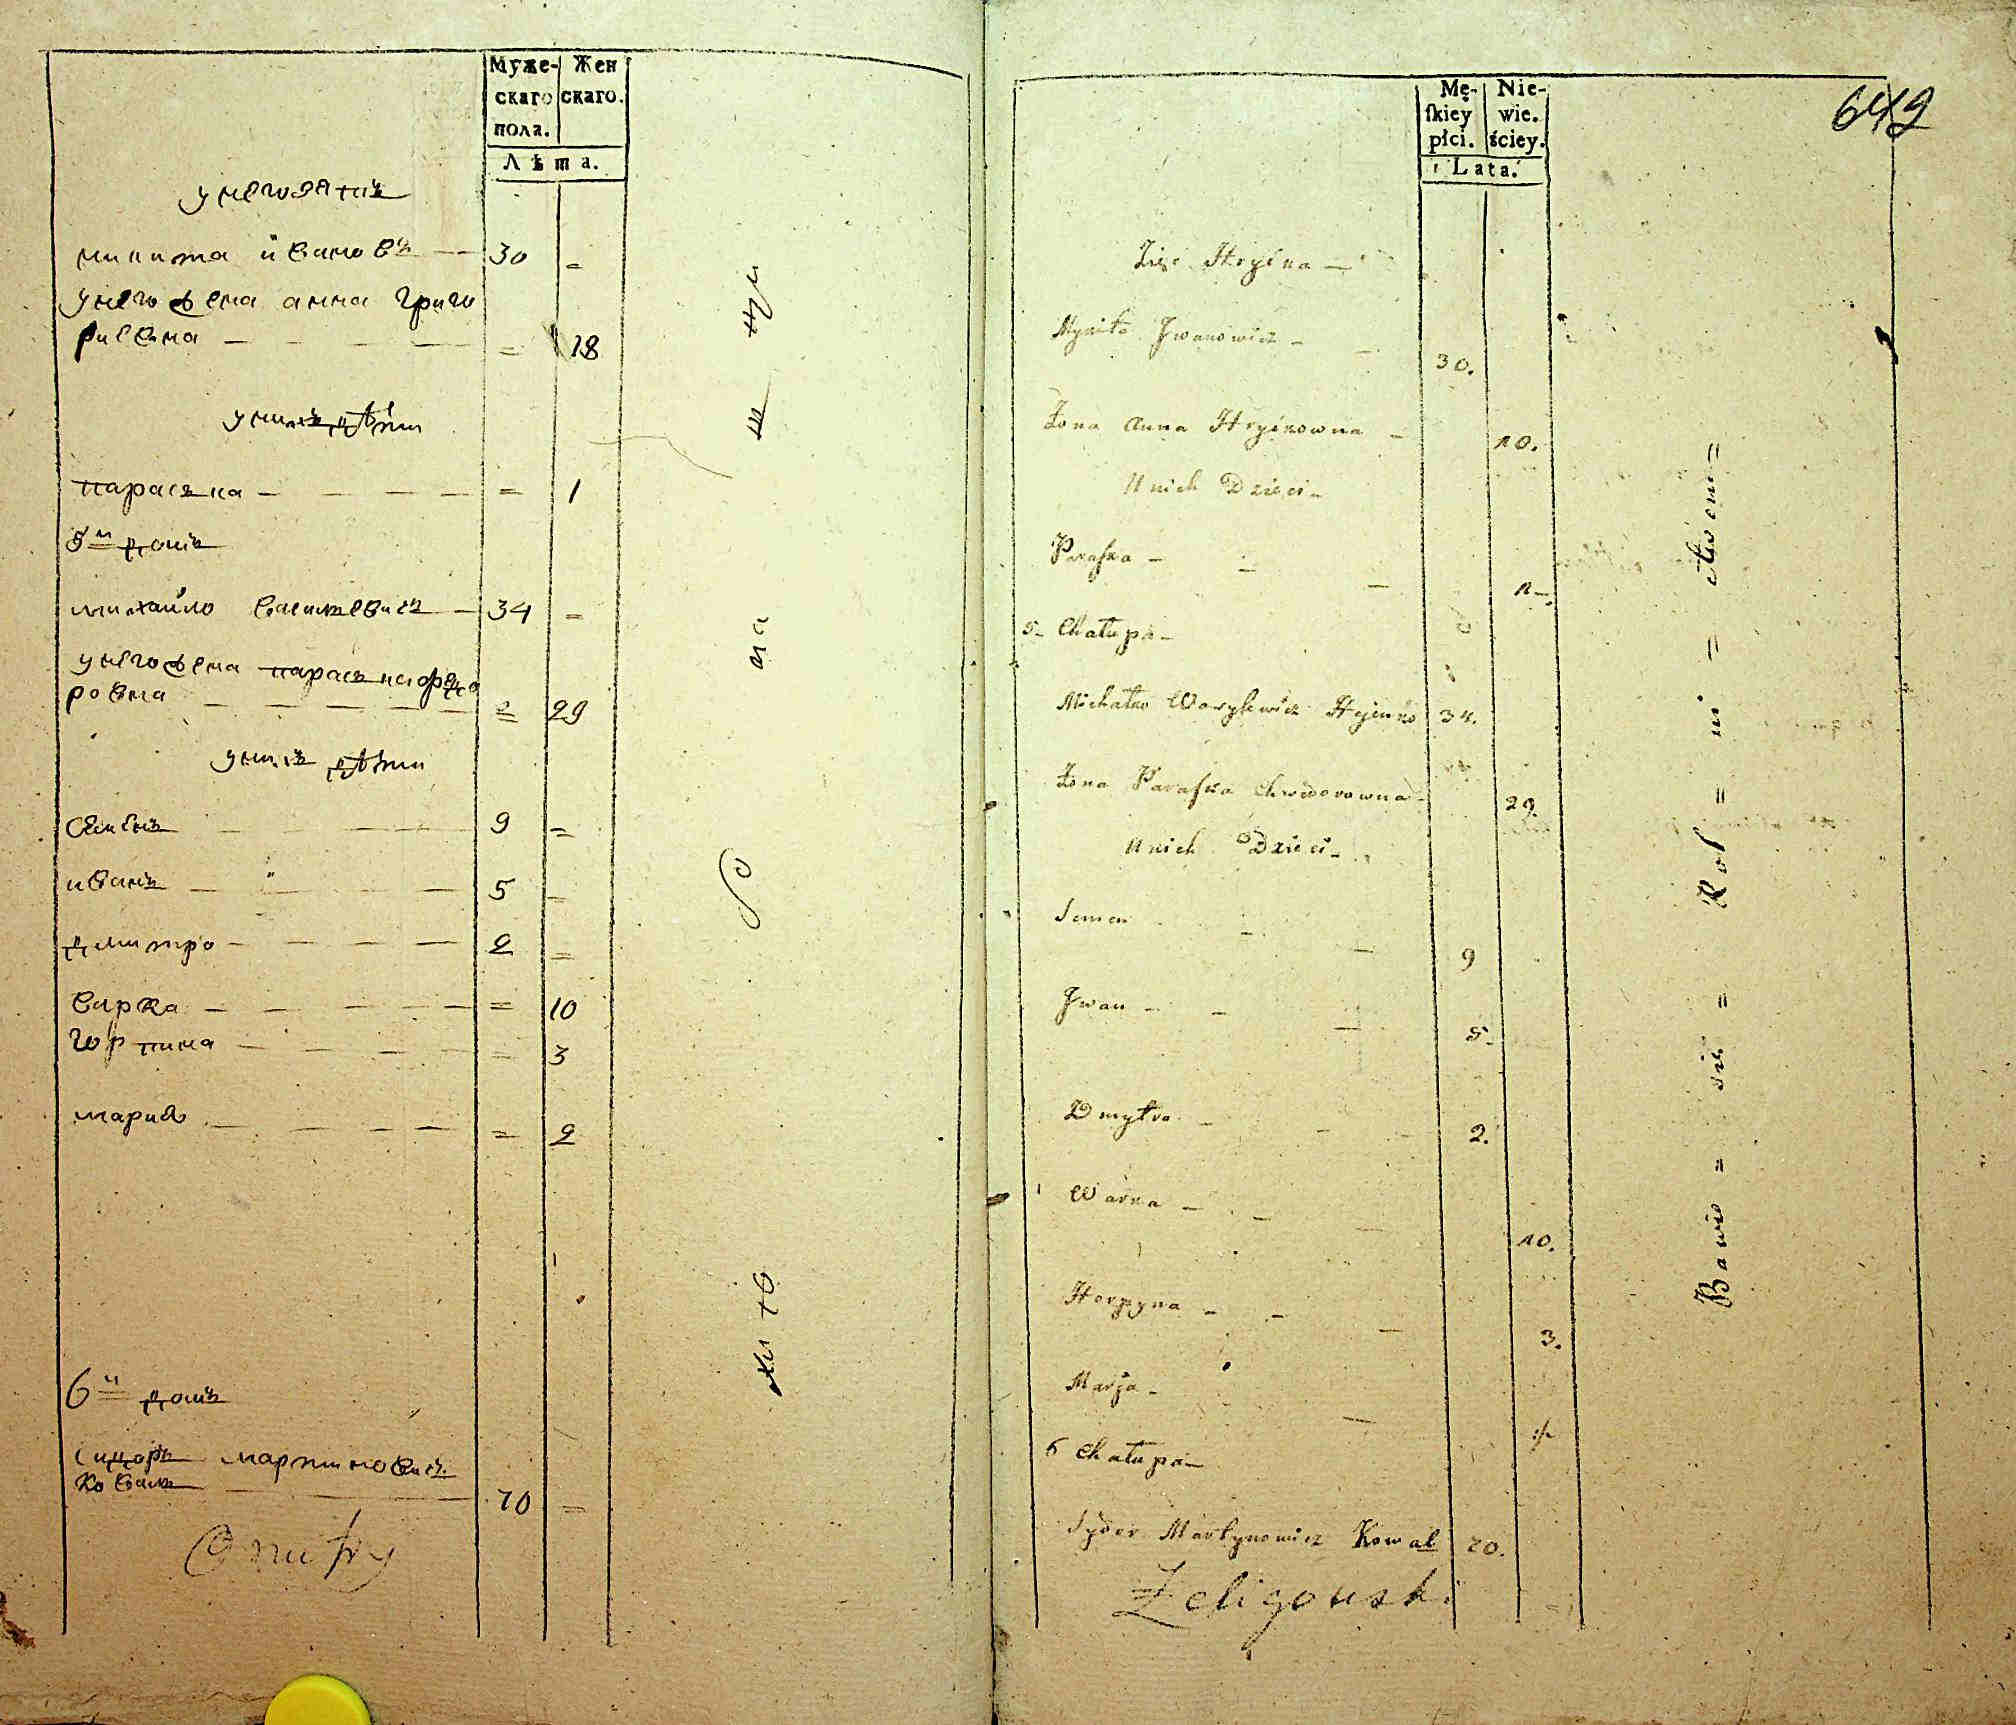 Муже-
скаго
пола.
Жен
скаго.
Лѣта.
унегозятъ
микита ивановъ — 30 =
унегожена анна григо
риевна — — — — = 18
унихъ дѣти
параська — — — — = 1
5й домъ
михайло василевичъ — 34 =
унегожена параська
ровна — — — — — = 29
унихъ дѣти
семенъ — — — 9 =
иванъ — — — 5 =
дмитро — — — — 2 =
варка — — — — = 10
горпина — — — — = 3
мария — — — — = 2
6й домъ
сидоръ мартиновичъ
коваль — 70 =
Męſkiey
płci.
Niewie.
ściey.
Lata.
649
Zięć Hryćka —
Mykita Jwanowicz — — 30.
Żona Anna Hryćkowna — 18.
U nich Dzieci —
Paraſka — — — 1—.
5— Chałupa —
Michałko Wasylewicz 34.
Żona Paraſka Chwedorowna — 29.
U nich Dzieci —
Semen — — 9
Jwan — — — 5.
Dmytro — — — 2.
Warka — — — 10.
Horpyna — — — 3.
Marja — —
6 Chałupa —
Sydor Martynowicz Kowal 70.
Żeligowski